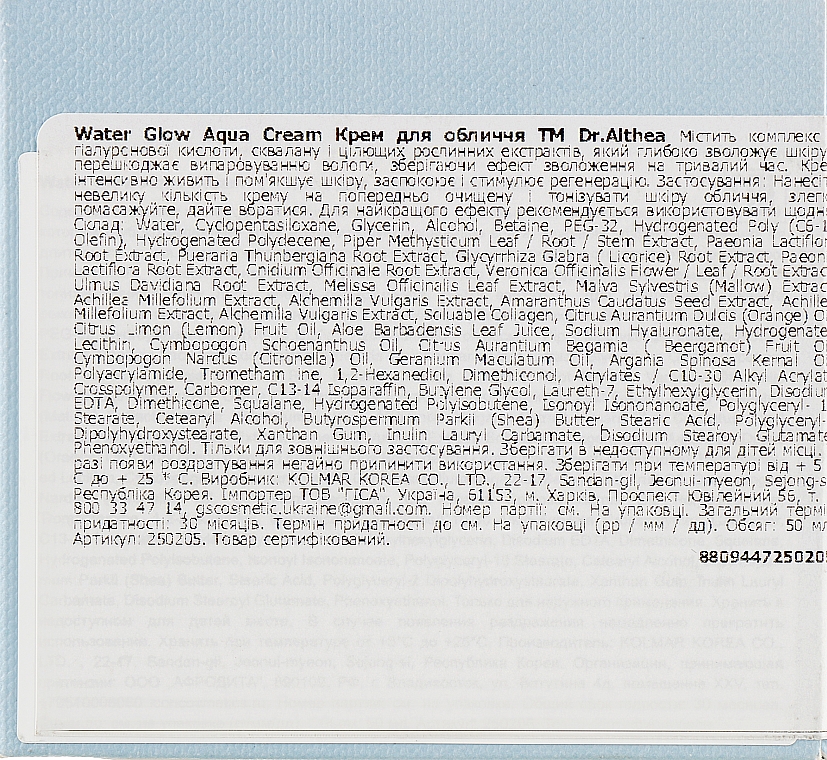 Water Glow Aqua Cream Крем для обличчя ТМ Dr.Althea Містить комплекс
гіалуронової кислоти, сквалану і цілющих рослинних екстрактів, який глибоко зволожує шкіру
перешкоджає випаровуванню вологи, зберігаючи ефект зволоження на тривалий час. Кре
інтенсивно живить і пом'якшує шкіру, заспокоює і стимулює регенерацію. Застосування: Нанесіт
невелику кількість крему на попередньо очищену і тонізувати шкіру обличчя, злег
помасажуйте, дайте вбратися. Для найкращого ефекту рекомендується використовувати щодн
Склад: Water, Cyclopentasiloxane, Glycerin, Alcohol, Betaine, PEG-32, Hydrogenated Poly (C6-1
Olefin), Hydrogenated Polydecene, Piper Methysticum Leaf / Root / Stem Extract, Paeonia Lactiflor
Root Extract, Pueraria Thunbergiana Root Extract, Glycyrrhiza Glabra ( Licorice) Root Extract, Paeon
Lactiflora Root Extract, Cnidium Officinale Root Extract, Veronica Officinalis Flower / Leaf / Root Extrac
Ulmus Davidiana Root Extract, Melissa Officinalis Leaf Extract, Malva Sylvestris (Mallow) Extrac
Achillea Millefolium Extract, Alchemilla Vulgaris Extract, Amaranthus Caudatus Seed Extract, Achille
Millefolium Extract, Alchemilla Vulgaris Extract, Soluable Collagen, Citrus Aurantium Dulcis (Orange) O
Citrus Limon (Lemon) Fruit Oil, Aloe Barbadensis Leaf Juice, Sodium Hyaluronate, Hydrogenate
Lecithin, Cymbopogon Schoenanthus Oil, Citrus Aurantium Begamia ( Beergamot) Fruit O
Cymbopogon Nardus (Citronella) Oil, Geranium Maculatum Oil, Argania Spinosa Kernal O
Polyacrylamide, Trometham ine, 1,2-Hexanediol, Dimethiconol, Acrylates / C10-30 Alkyl Acrylat
Crosspolymer, Carbomer, C13-14 Isoparaffin, Butylene Glycol, Laureth-7, Ethylhexylglycerin, Disodiu
EDTA, Dimethicone, Squalane, Hydrogenated Polyisobutene, Isonoyl Isononanoate, Polyglyceryl- 1
Stearate, Cetearyl Alcohol, Butyrospermum Parkii (Shea) Butter, Stearic Acid, Polyglyceryl-
Dipolyhydroxystearate, Xanthan Gum, Inulin Lauryl Carbamate, Disodium Stearoyl Glutamate
Phenoxyethanol. Тільки для зовнішнього застосування. Зберігати в недоступному для дітей місці.
разі появи роздратування негайно припинити використання. Зберігати при температурі від + 5
С до + 25 ° С. Виробник: KOLMAR KOREA CO., LTD., 22-17, Sandan-gil, Jeonui-myeon, Sejong-s
Республіка Корея. Імпортер ТОВ "ГІСА", Україна, 61153, м. Харків, Проспект Ювілейний 56, т.
800 33 47 14, gscosmetic.ukraine@gmail.com. Номер партії: см. На упаковці. Загальний термі
придатності: 30 місяців. Термін придатності до см. На упаковці (рр / мм / дд). Обсяг: 50 мл
Артикул: 250205. Товар сертифікований.
880944725020